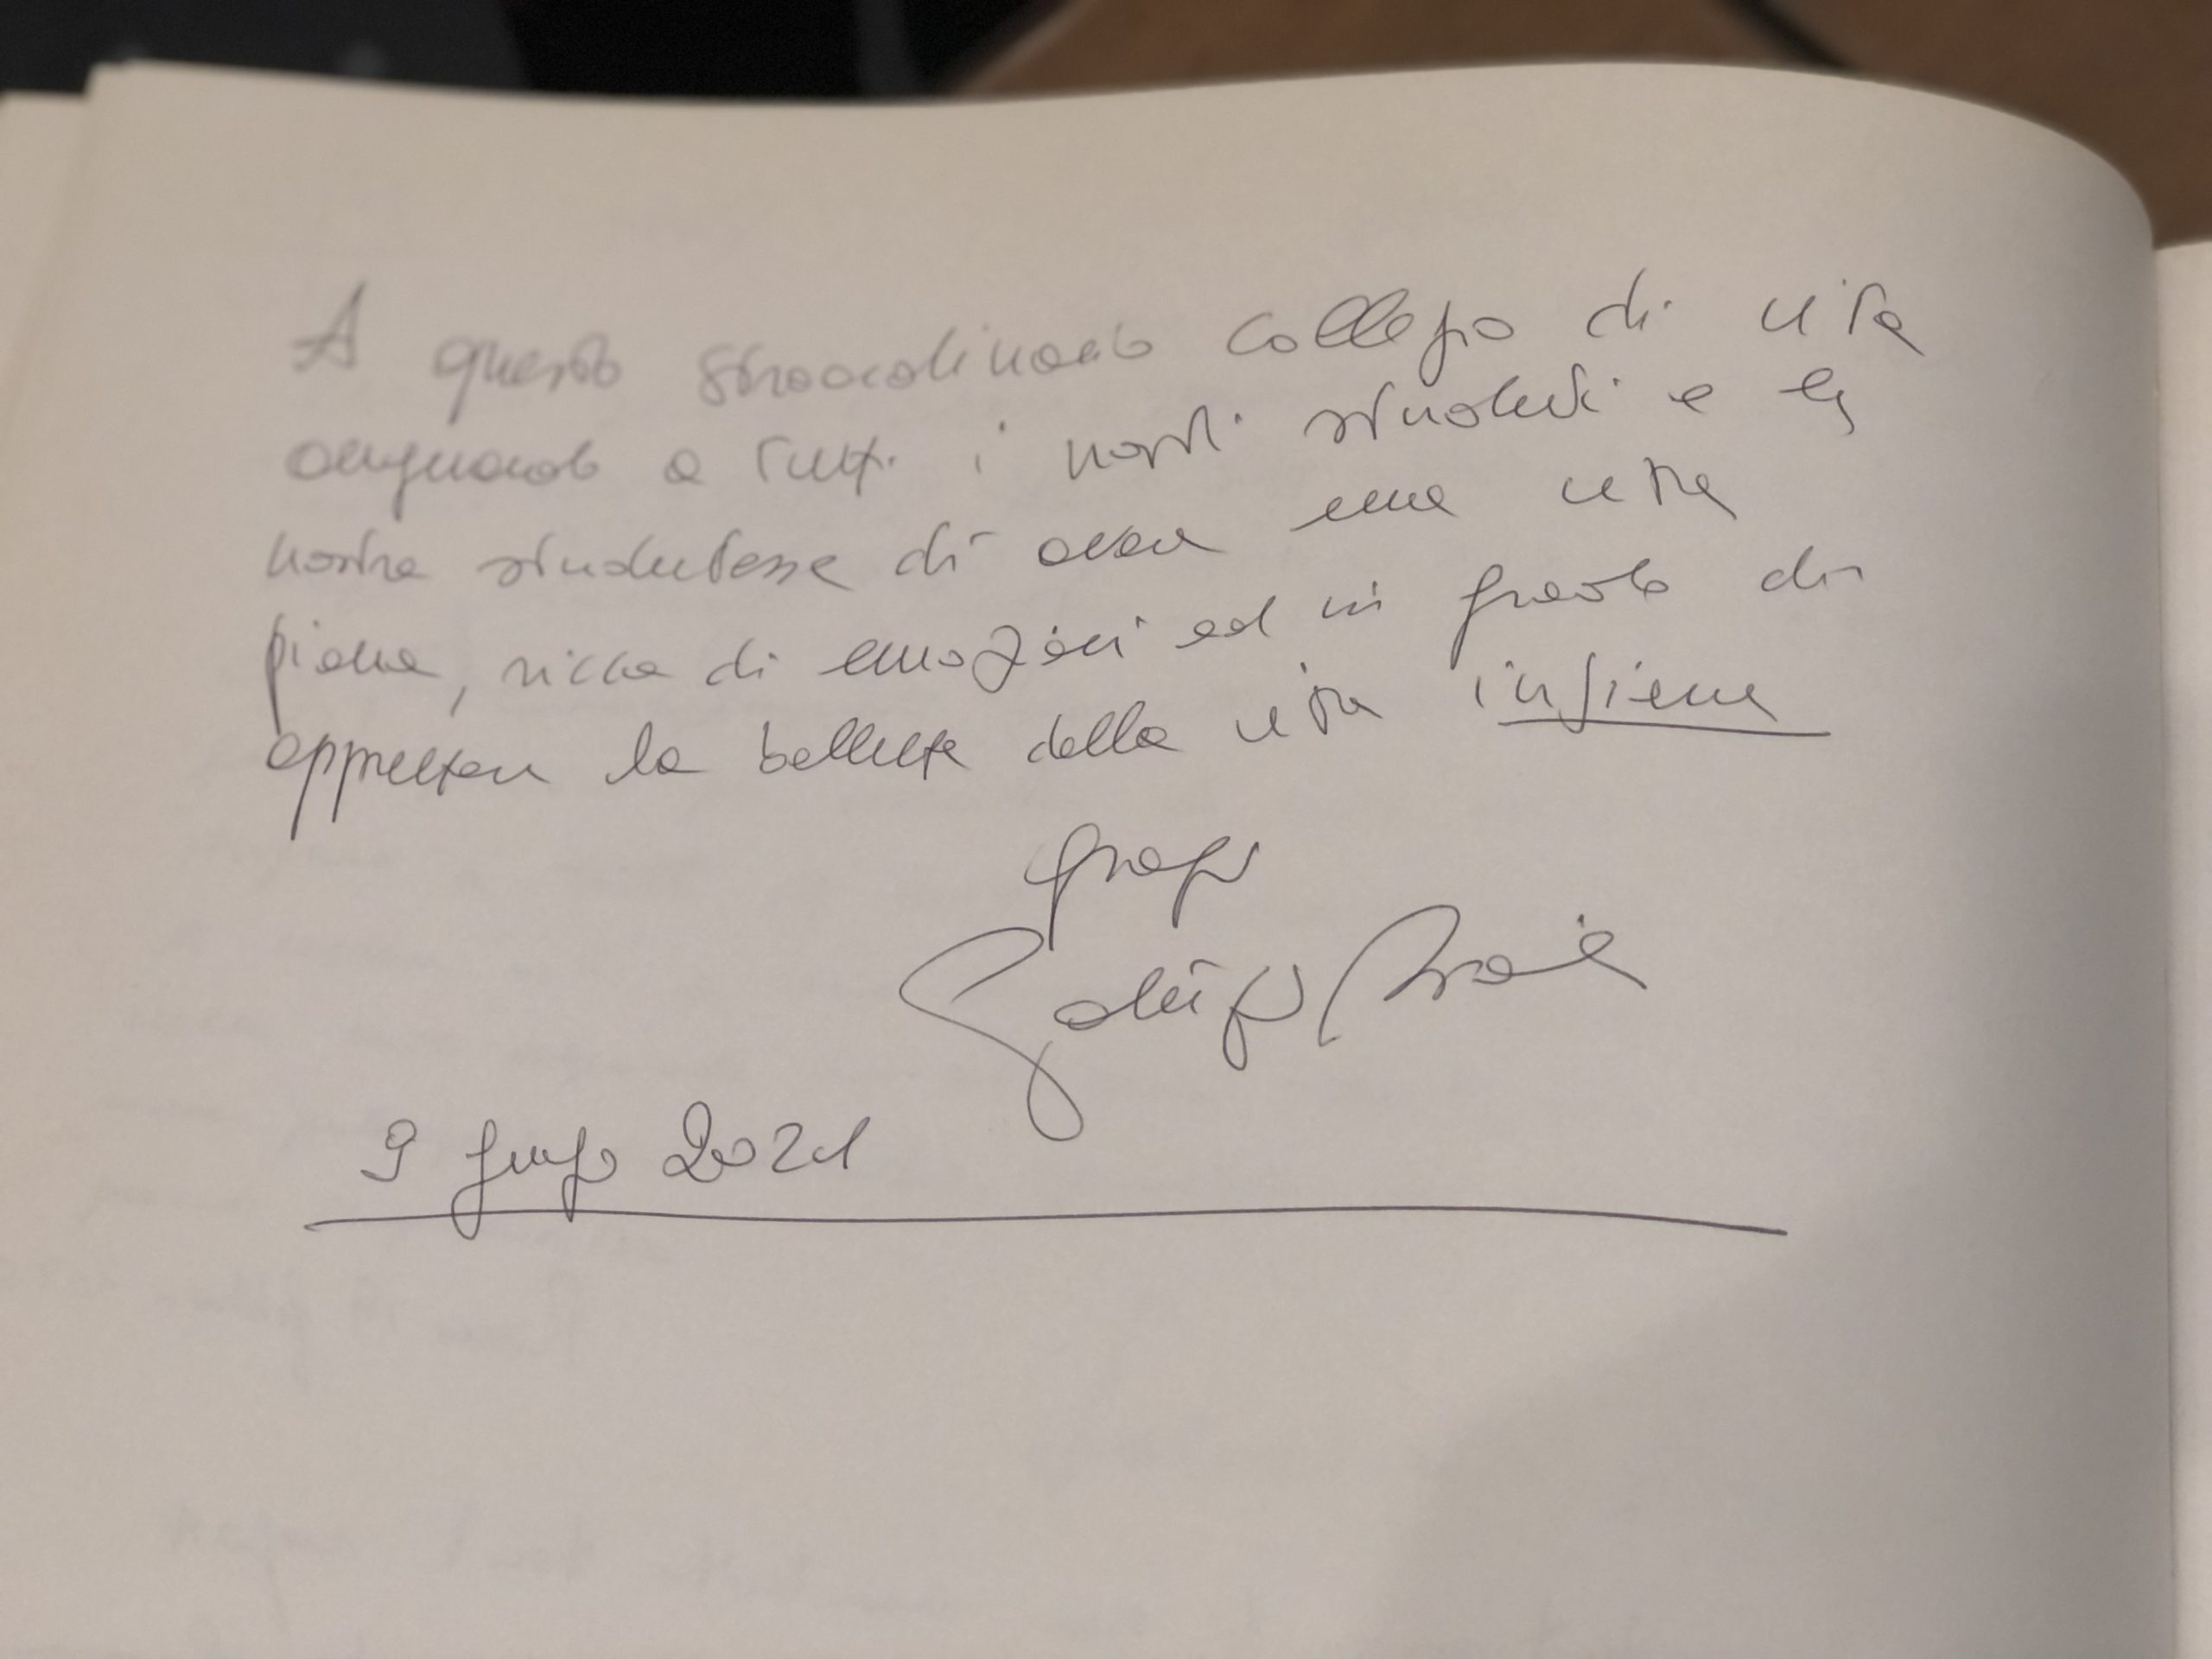 A questo straordinario collegio di vita
augurando a tutti i nostri studenti e le
nostre studentesse di avere una vita
piena, ricca di emozioni ed in grado di
apprezzare la bellezza della vita insieme
grazie
9 giugno 2021